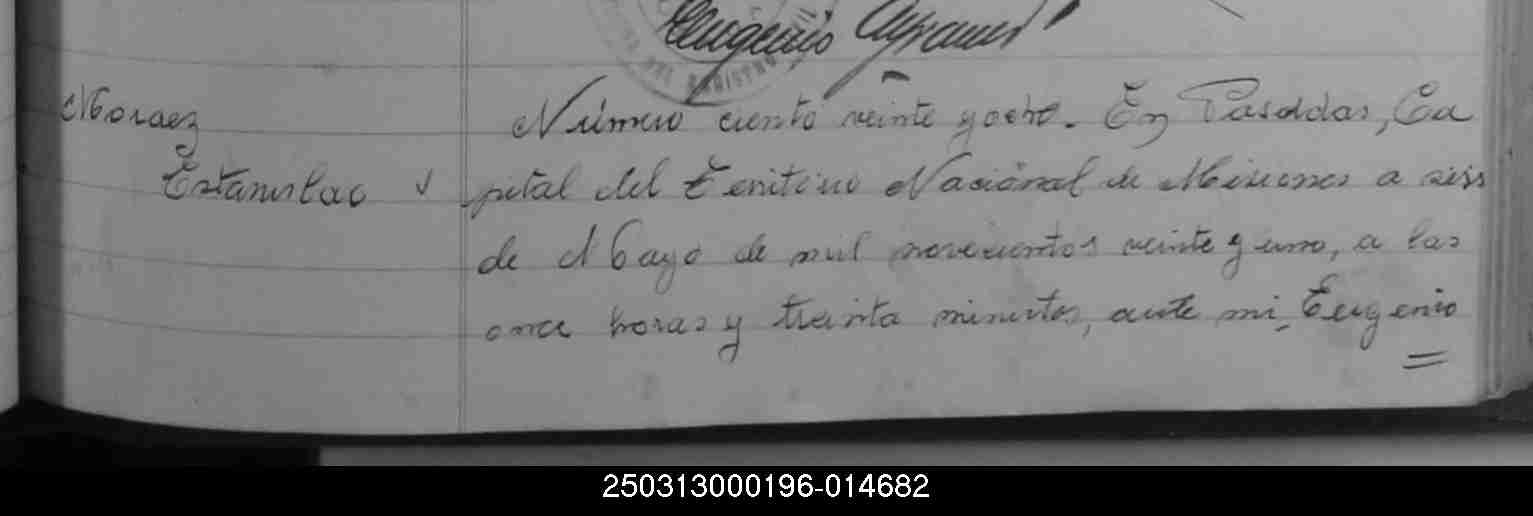 Eugenio
DEL REGISTRO
Moraez
Estanislao √
Número ciento veinte y ocho. En Posadas, Ca
pital del Territorio Nacional de Misiones a seis
de Mayo de mil novecientos veinte y uno, a las
once horas y treinta minutos, ante mi, Eugenio
=
250313000196-014682